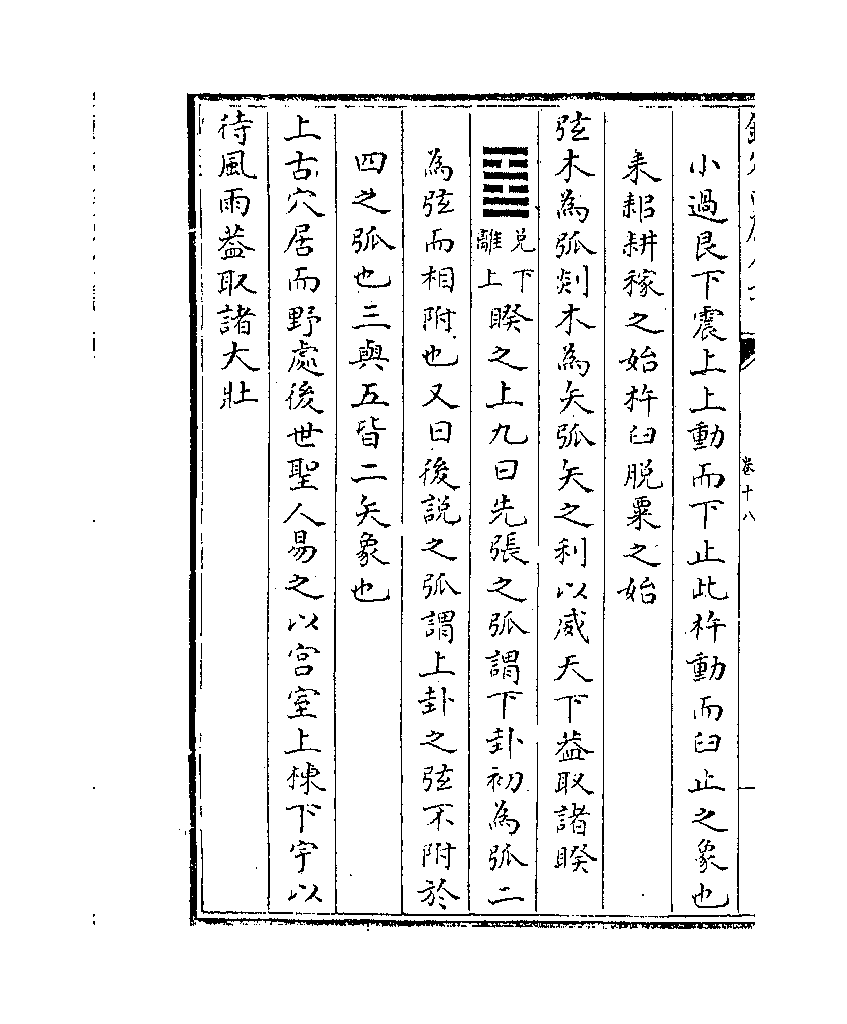 卷十八
小過艮下震上上動而下止此杵動而臼止之象也
耒耜耕稼之始杵臼脱粟之始
弦木為弧剡木為矢弧矢之利以威天下葢取諸睽
兑下離上睽之上九曰先張之弧謂下卦初為弧二
為弦而相附也又曰後説之弧謂上卦之弦不附於
四之弧也三與五皆二矢象也
上古穴居而野處後世聖人易之以宫室上棟下宇以
待風雨葢取諸大壯